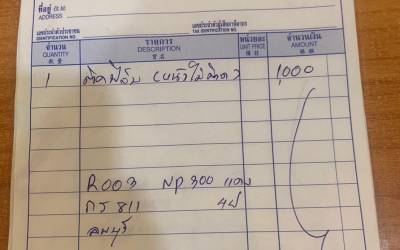 ที่อยู่ (住址)
ADDRESS
เลขประจำตัวประชาชน
IDENTIFICATION NO
เลขประจำตัวผู้เสียภาษีอากร
TAX IDENTIFICATION NO
จำนวน รายการ หน่วยละ จำนวนเงิน
QUANTITY DESCRIPTION UNIT PRICE AMOUNT
数量
1 ติดฟิล์ม 1,000
R003 NP300 แดง
811 4ป
ลพบุรี